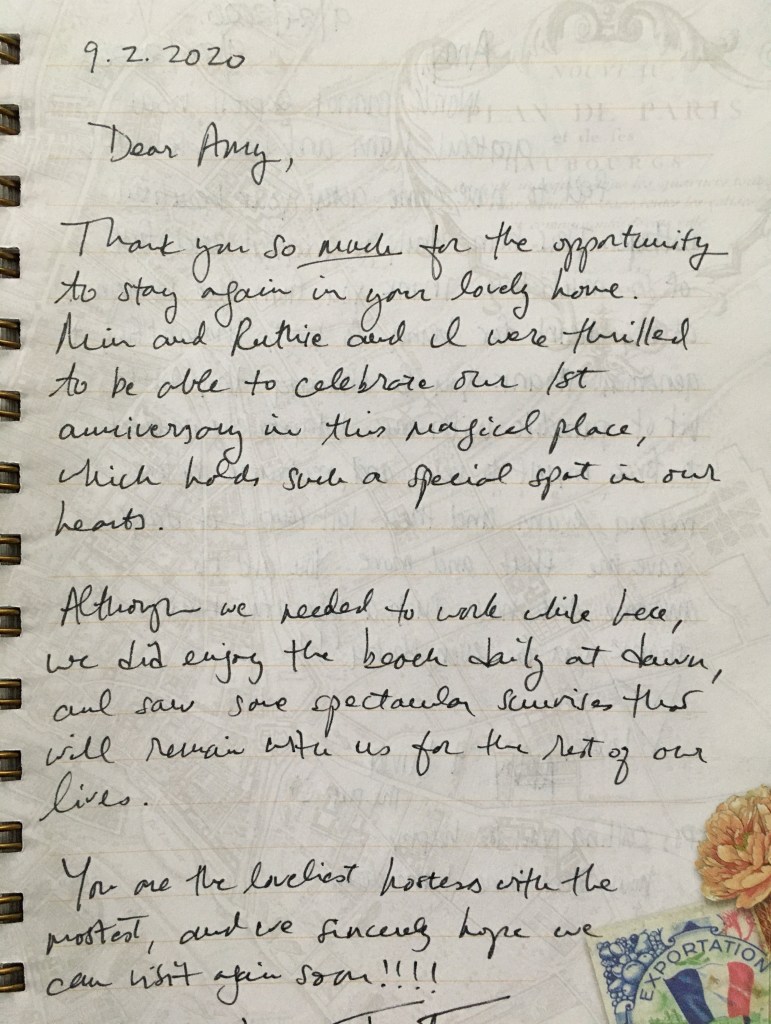 9.2.2020
Dear Amy,
Thank you so much for the opportunity
to stay again in your lovely home.
Min and Ruthie and I were thrilled
to be able to celebrate our 1st
anniversary in this magical place,
which holds such a special spot in our
hearts.
Although we needed to work while here,
we did enjoy the beach daily at dawn,
and saw some spectacular sunrises that
will remain with us for the rest of our
lives.
You are the loveliest hostess with the
mostest, and we sincerely hope we
can visit again soon!!!!
NOUVEAU
PLAN DE PARIS
et de ses
FAUBOURGS
EXPORTATION